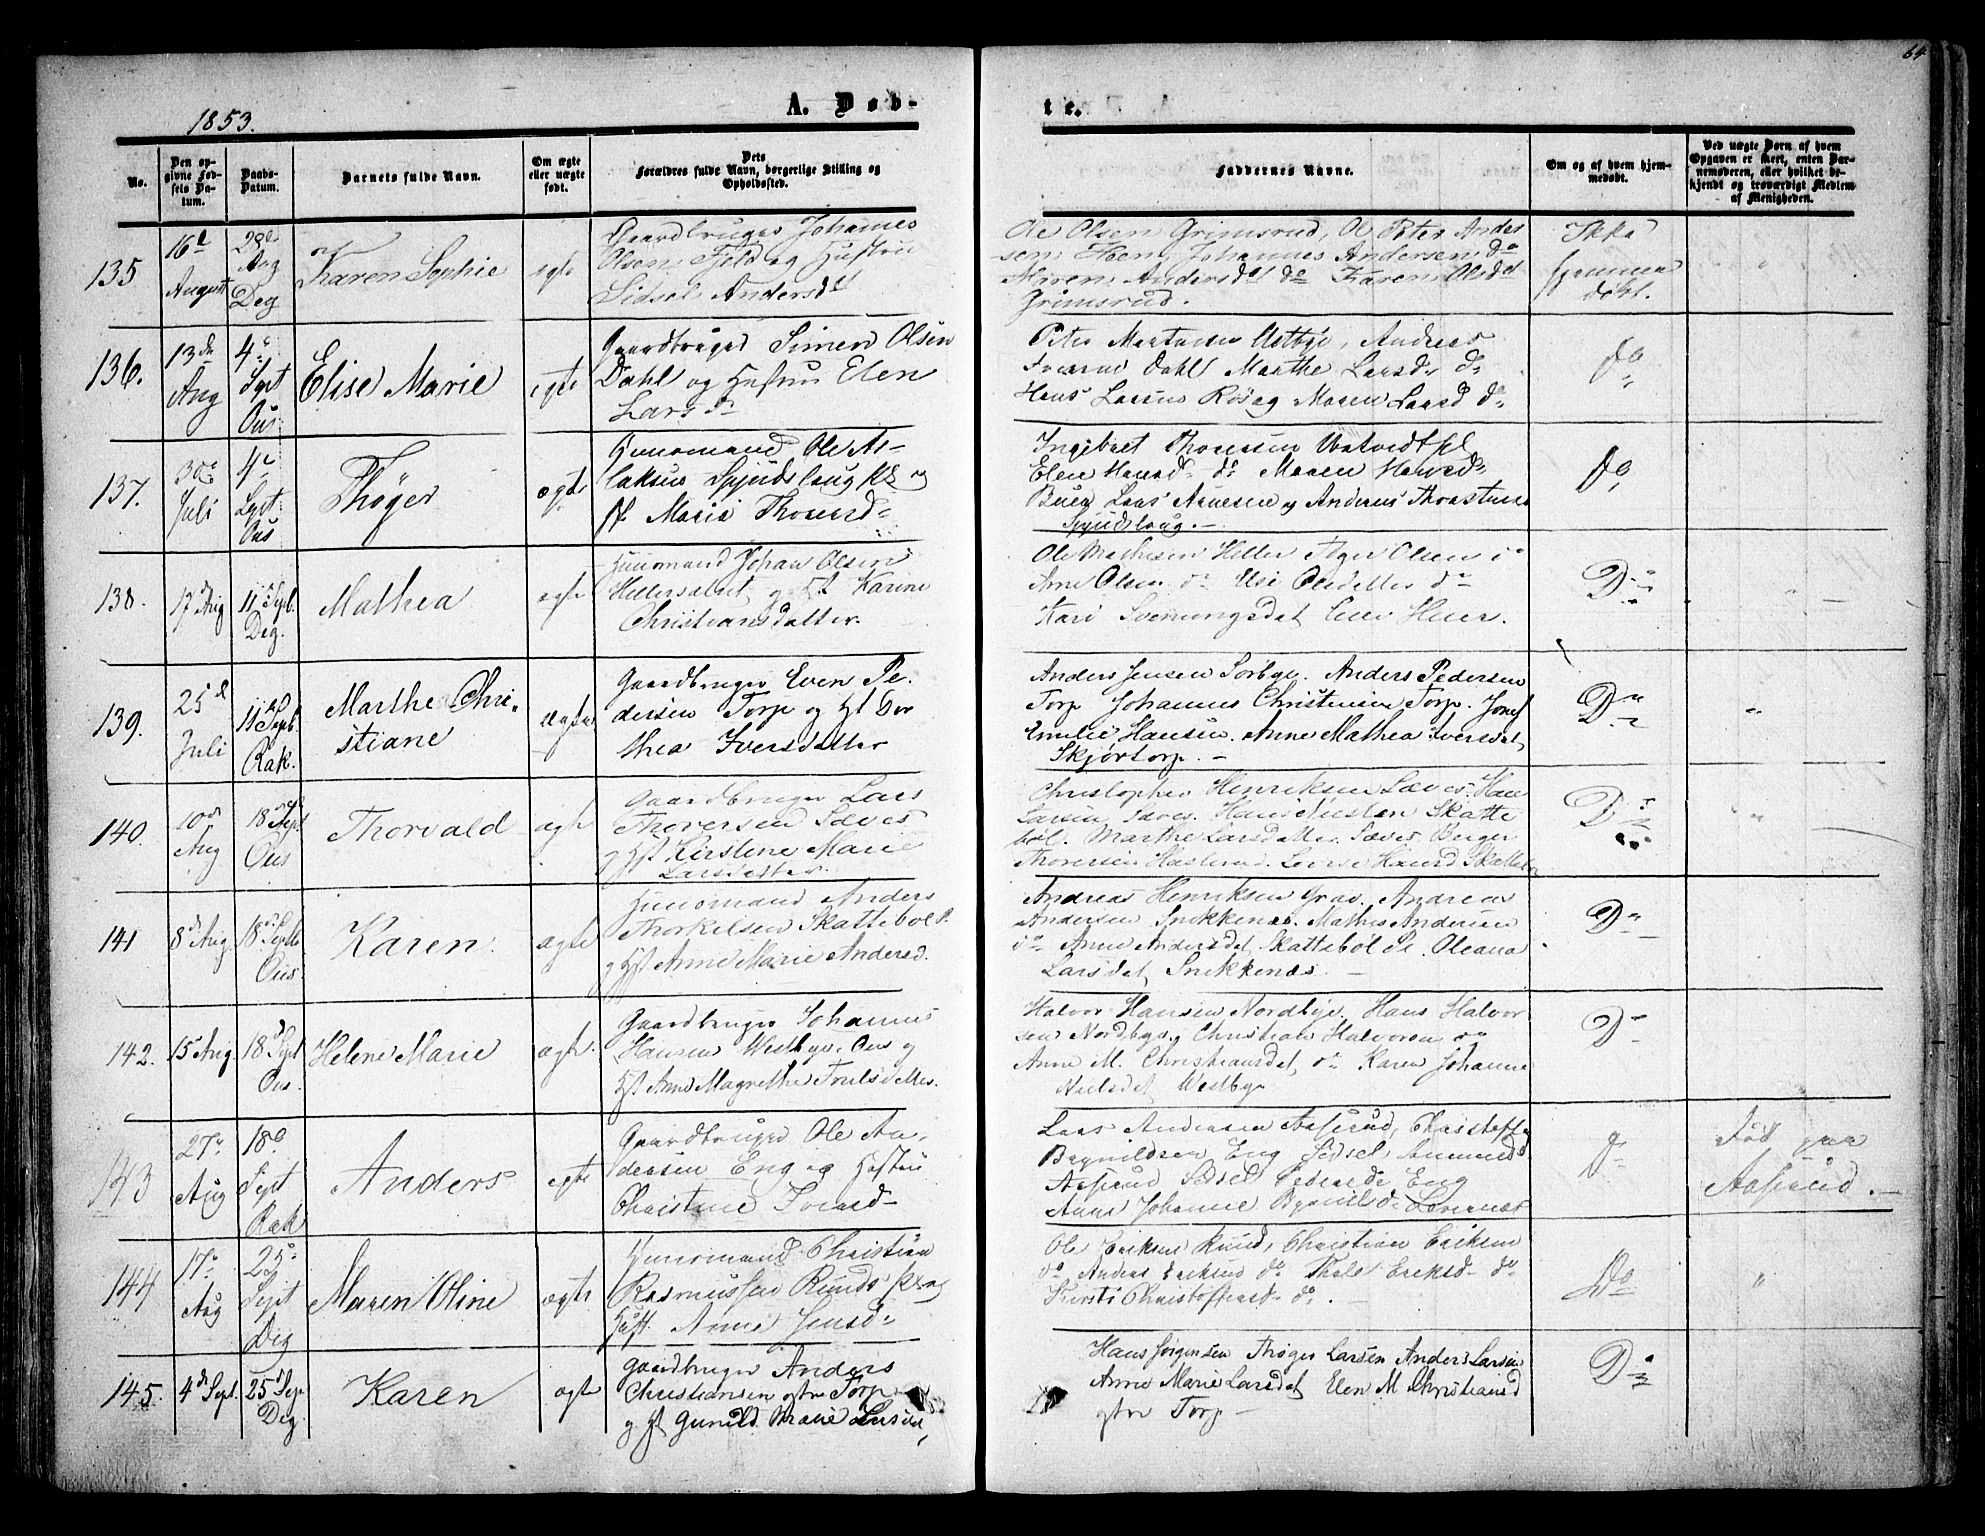 64
1853.
A. Døb-
te.
No.
Den op-
givne Fød-
sels Da-
tum.
Daabs-
Datum.
Barnets fulde Navn.
Om ægte
eller uægte
født.
Dets
Forældres fulde Navn, borgerlige Stilling og
Opholdssted.
Faddernes Navne.
Om og af hvem hjem-
medøbt.
Ved uægte Børn af hvem
Opgaven er skeet, enten Bar-
nemoderen, eller hvilket be-
kjendt og troværdigt Medlem
af Menigheden.
135
16de
August
28de
Aug
Deg
Karen Sophie
egte
Gaardbruger Johannes
Olsen Fjeld og Hustru
Sidsel Andersd
Ole Olsen Grimsrud, Ole Peter Ander
sen Hoen, Johannes Andersen do
Maren Andersdat do Karen Olsdat
Grimsrud.
Ikke
hjemme
døbt.
136.
13de
Aug
4de
Sept
Ous
Elise Marie
egte
Gaardbruger Simen Olsen
Dahl og Hustru Elen
Larsd
Peter Dahl Marthe Larsd do
Hans Larsens og Maren Larsd do
do
137.
30te
Juli
4de
Sept
Ous
Thøger
ægte
Huusmand Ole As-
laksen Spjudslaug og
Maria Thoresd
Ingebret Thoresen
Elen Hansd do Maren Hansd
Buer Lars Arnesen og Anders
Spjudslaug.-
do
138.
17de Aug
11te Sept.
Deg.
Mathea
ægte
Huusmand Johan Olsen
og Karine
Christiansdatter.
Ole Mathisen Heller Olsen do
Arne Olsen do Else Olsdatter do
Kari Svenningsdat
Do
139.
25de
Juli
11te Sept.
Rak.
Marthe Chri-
stiane
ægte
Gaardbruger Even Pe-
dersen Torp og Hst Dor
thea Iversdatter
Anders Jensen Sørbye. Anders Pedersen
Torp Johannes Christensen Torp. Josef
Emilie Hansen. Anne Mathea Iversdat
Skjørtorp. -
Do
140.
10de
Aug
18de Sept
Ous
Thorvald
ægte
Gaardbruger Lars
Thoresen Sæves
og Hst Kirstine Marie
Larsdatter.
Christopher Henriksen Sæves. Hans
Larsen Sæves. Hans Skatte
bøl. Marthe Larsdatter Sæves Berger
Thoresen Haslerud. Lovise Hansd Skattebøl
Do
141
8de Aug
18de Sept
Ous.
Karen
ægte
Huusmand Anders
Thorkelsen Skattebøl
og Hst Anne Marie Andersd.
Andreas Henriksen Grav. Andreas
Andersen Snekkenæs. Mathis Andersen
do Anne Andersdat Skattebøl Oleana
Larsdat Snekkenæs. -
Do
142.
15de Aug
18de Sept
Ous
Helene Marie
ægte
Gaardbruger Johannes
Hansen Westbye. Ous og
Hst Anne Magrethe Troelsdatter.
Halvor Hansen Nordbye. Hans Halvor
sen Nordbye, Christian Halvorsen do
Anne M. Christiansdat, do Karen Johanne
Nielsdat Westbye
Do
143
27de
Aug
18de
Sept
Rak
Anders
egte
Gaardbruger Ole An-
dersen Eng og Hustru
Christine Iversd
Lars Andersen Aaserud, Christoffer
Brynildsen Eng Sidsel Amunds
Aaserud Sidsel Pedersd Eng
Anne Johanne Brynilsd
Do
Fød paa
Aaserud. -
144
17de
Aug
25de
Sept
Deg
Maren Oline
ægte
Huusmand Christian
Rasmussen Ruud og
Hust. Anne Jensd
Ole Eriksen Ruud, Christian Eriksen
do Anders Eriksen do Thale Eriksd do
Kirsti Christoffersd do. -
Do
145.
4de Sept.
25de Sep.
Deg
Karen
ægte
Gaardbruger Anders
Christiansen østre Torp
og Hst Gunild Marie Larsdat,
Hans Jørgensen Thøger Larsen Anders Larsen
Anne Marie Larsdat Elen M Christiansd
østre Torp -
Do